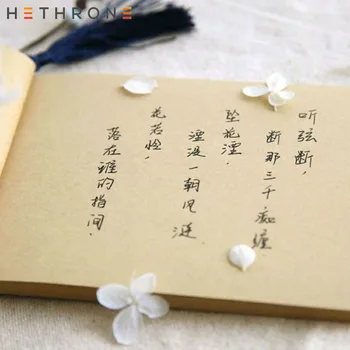 HETHRONE
听弦断，
断那三千痴缠。
坠花湮，
湮没一朝风涟
花若怜，
落在谁的指间。